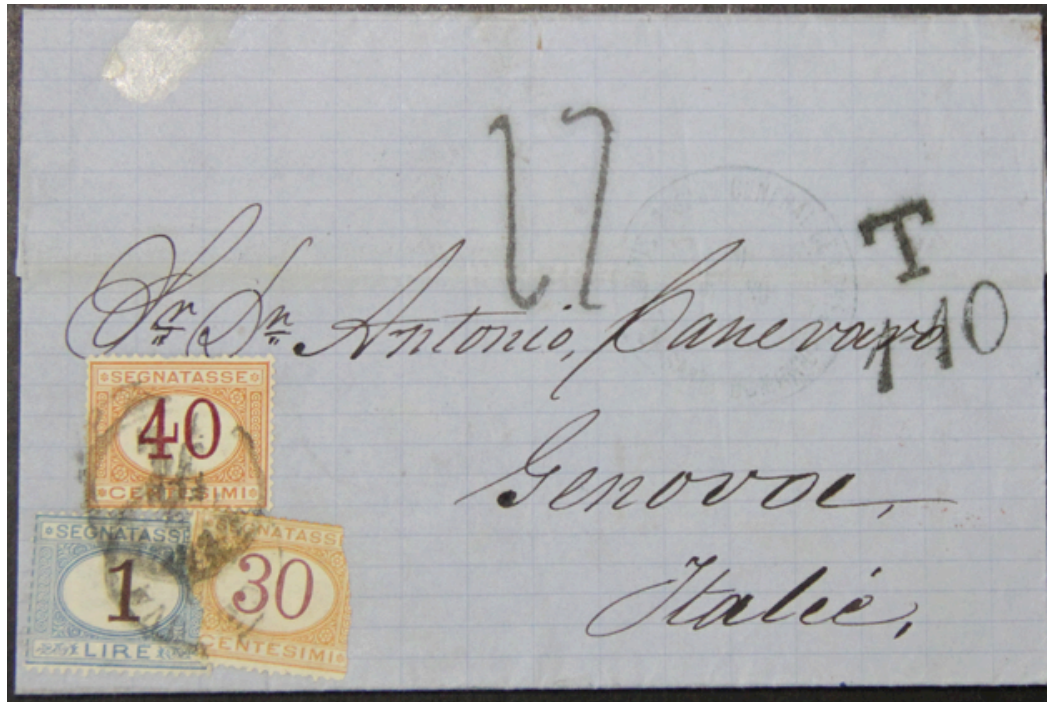 17
T
1 10
Sr. Dn. Antonio, Canevaro
Genova,
Italie,
SEGNATASSE
40
CENTESIMI
SEGNATASSE
1
LIRE
SEGNATASSE
30
CENTESIMI